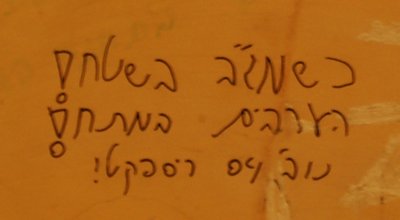 כשמג"ב בשטח!
הערבים במתח!
נוב' רספקט!